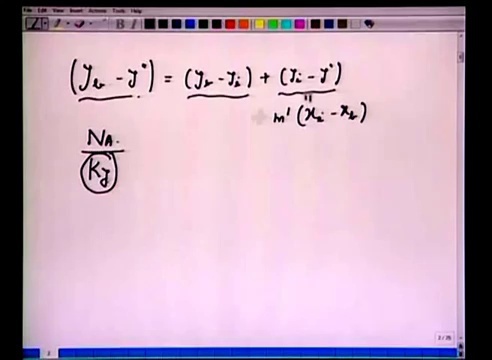 File Edit View Insert Actions Tools Help
B
(y_b - y*) = (y_b - y_i) + (y_i - y*)
"
m' (x_i - x_b)
N_A.
K_y
2
2 / 25